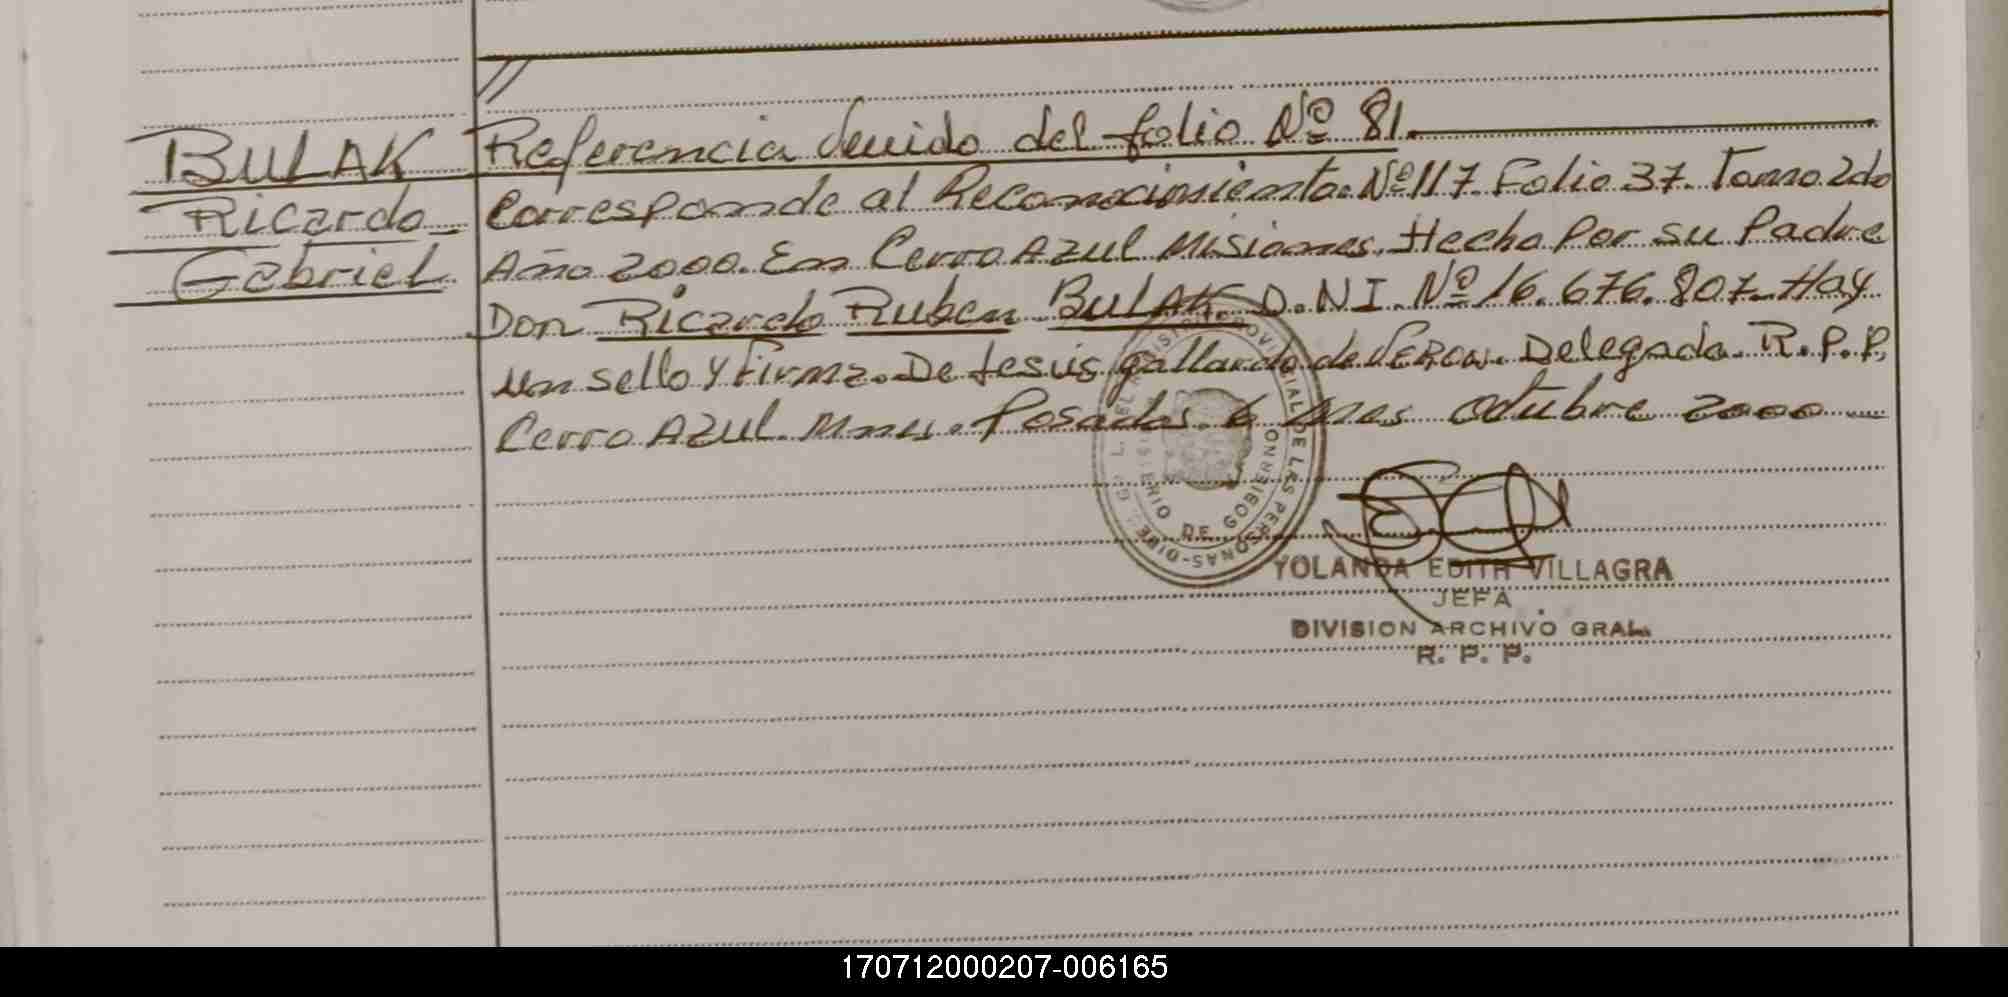 BULAK
Ricardo
Gabriel
Referencia venido del folio Nº 81.
Corresponde al Reconocimiento. Nº 117. Folio 37. Tomo 2do
Año 2000. En Cerro Azul Misiones. Hecho Por su Padre
Don Ricardo Ruben BULAK. D.N.I. Nº 16.676.807. Hay
un sello y Firma. De Jesus gallardo de VERON. Delegada. R.P.P.
Cerro Azul. Mnes. Posadas. 6 mes octubre 2000
MINISTERIO DE GOBIERNO
YOLANDA EDITH VILLAGRA
JEFA
DIVISION ARCHIVO GRAL.
R. P. P.
170712000207-006165